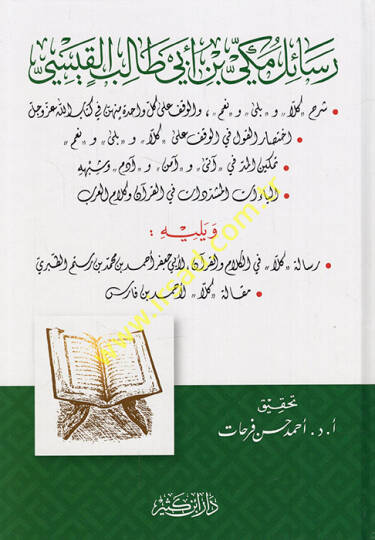 رسائل مكي بن أبي طالب القيسي
• شرح «كلا» و «بلى» و «نعم»، والوقف على كل واحدة منهن في كتاب الله عز وجل
• اختصار القول في الوقف على «كلا» و «بلى» و «نعم»
• تمكين المد في «آتى» و «آمن» و «آدم» وشبهه
• الياءات المشددات في القرآن وكلام العرب
ويليه :
• رسالة «كلا» في الكلام والقرآن لأبي جعفر أحمد بن محمد بن رستم الطبري
• مقالة «كلا» لأحمد بن فارس
تحقيق
أ. د. أحمد حسن فرحات
دار ابن كثير